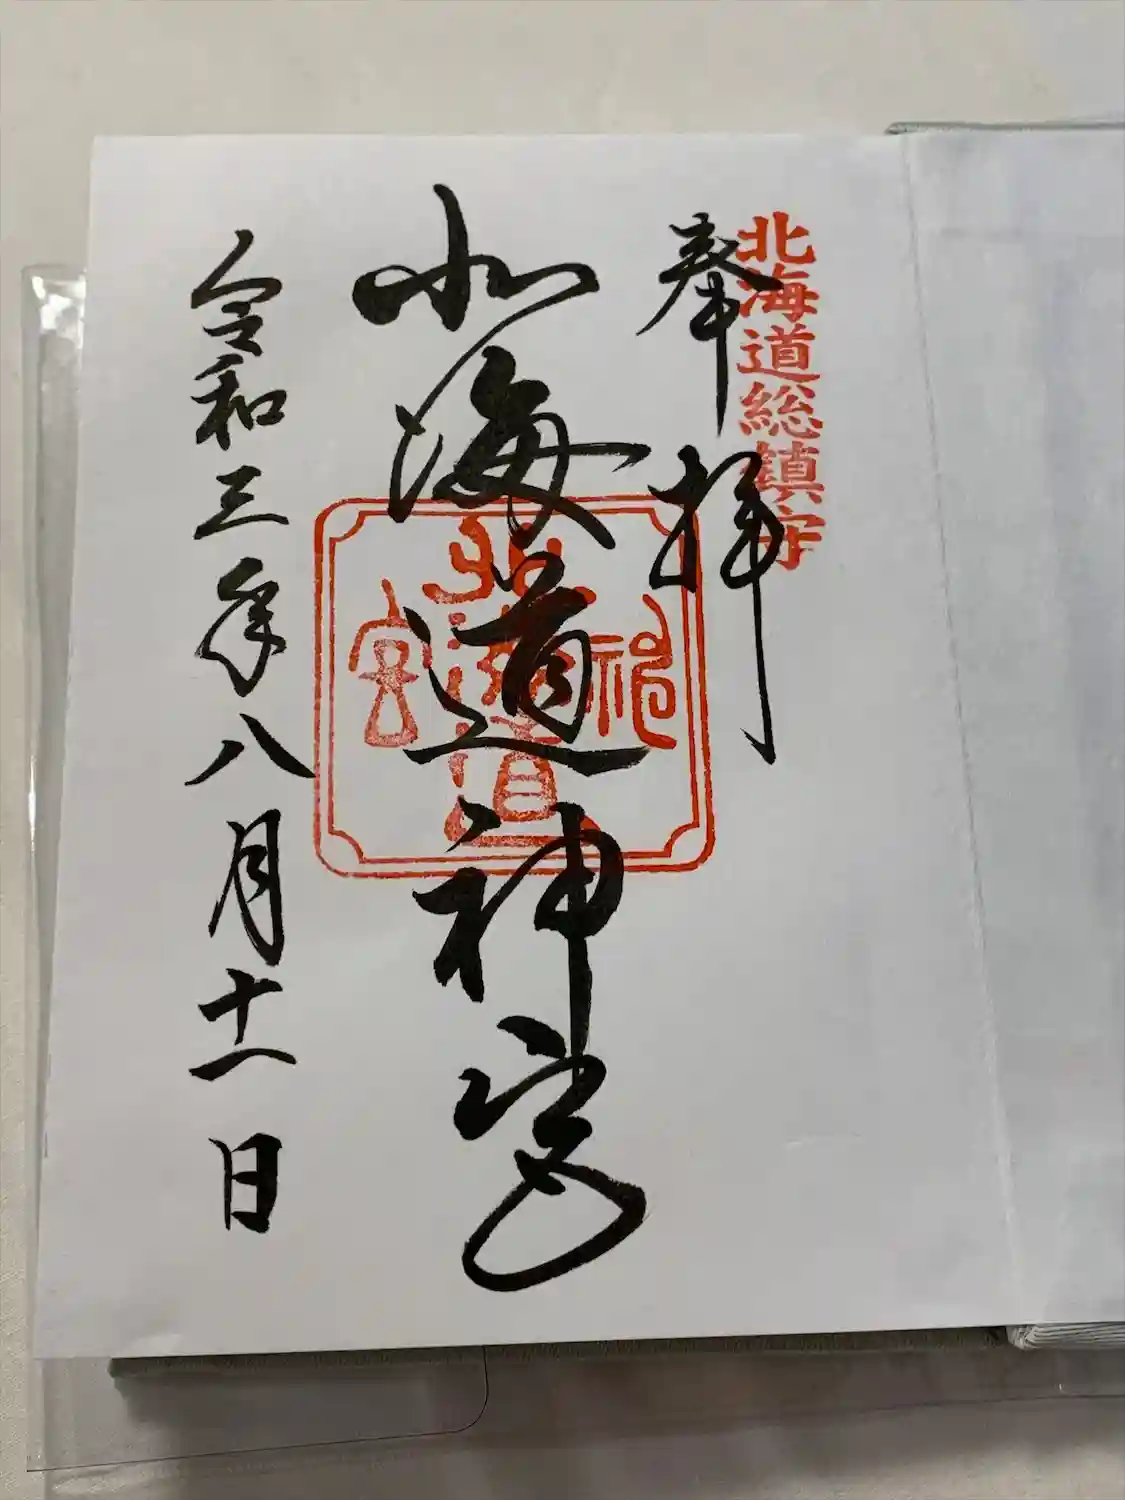 北海道総鎮守
奉拝
北海道神宮
北海道神宮
令和三年八月十一日